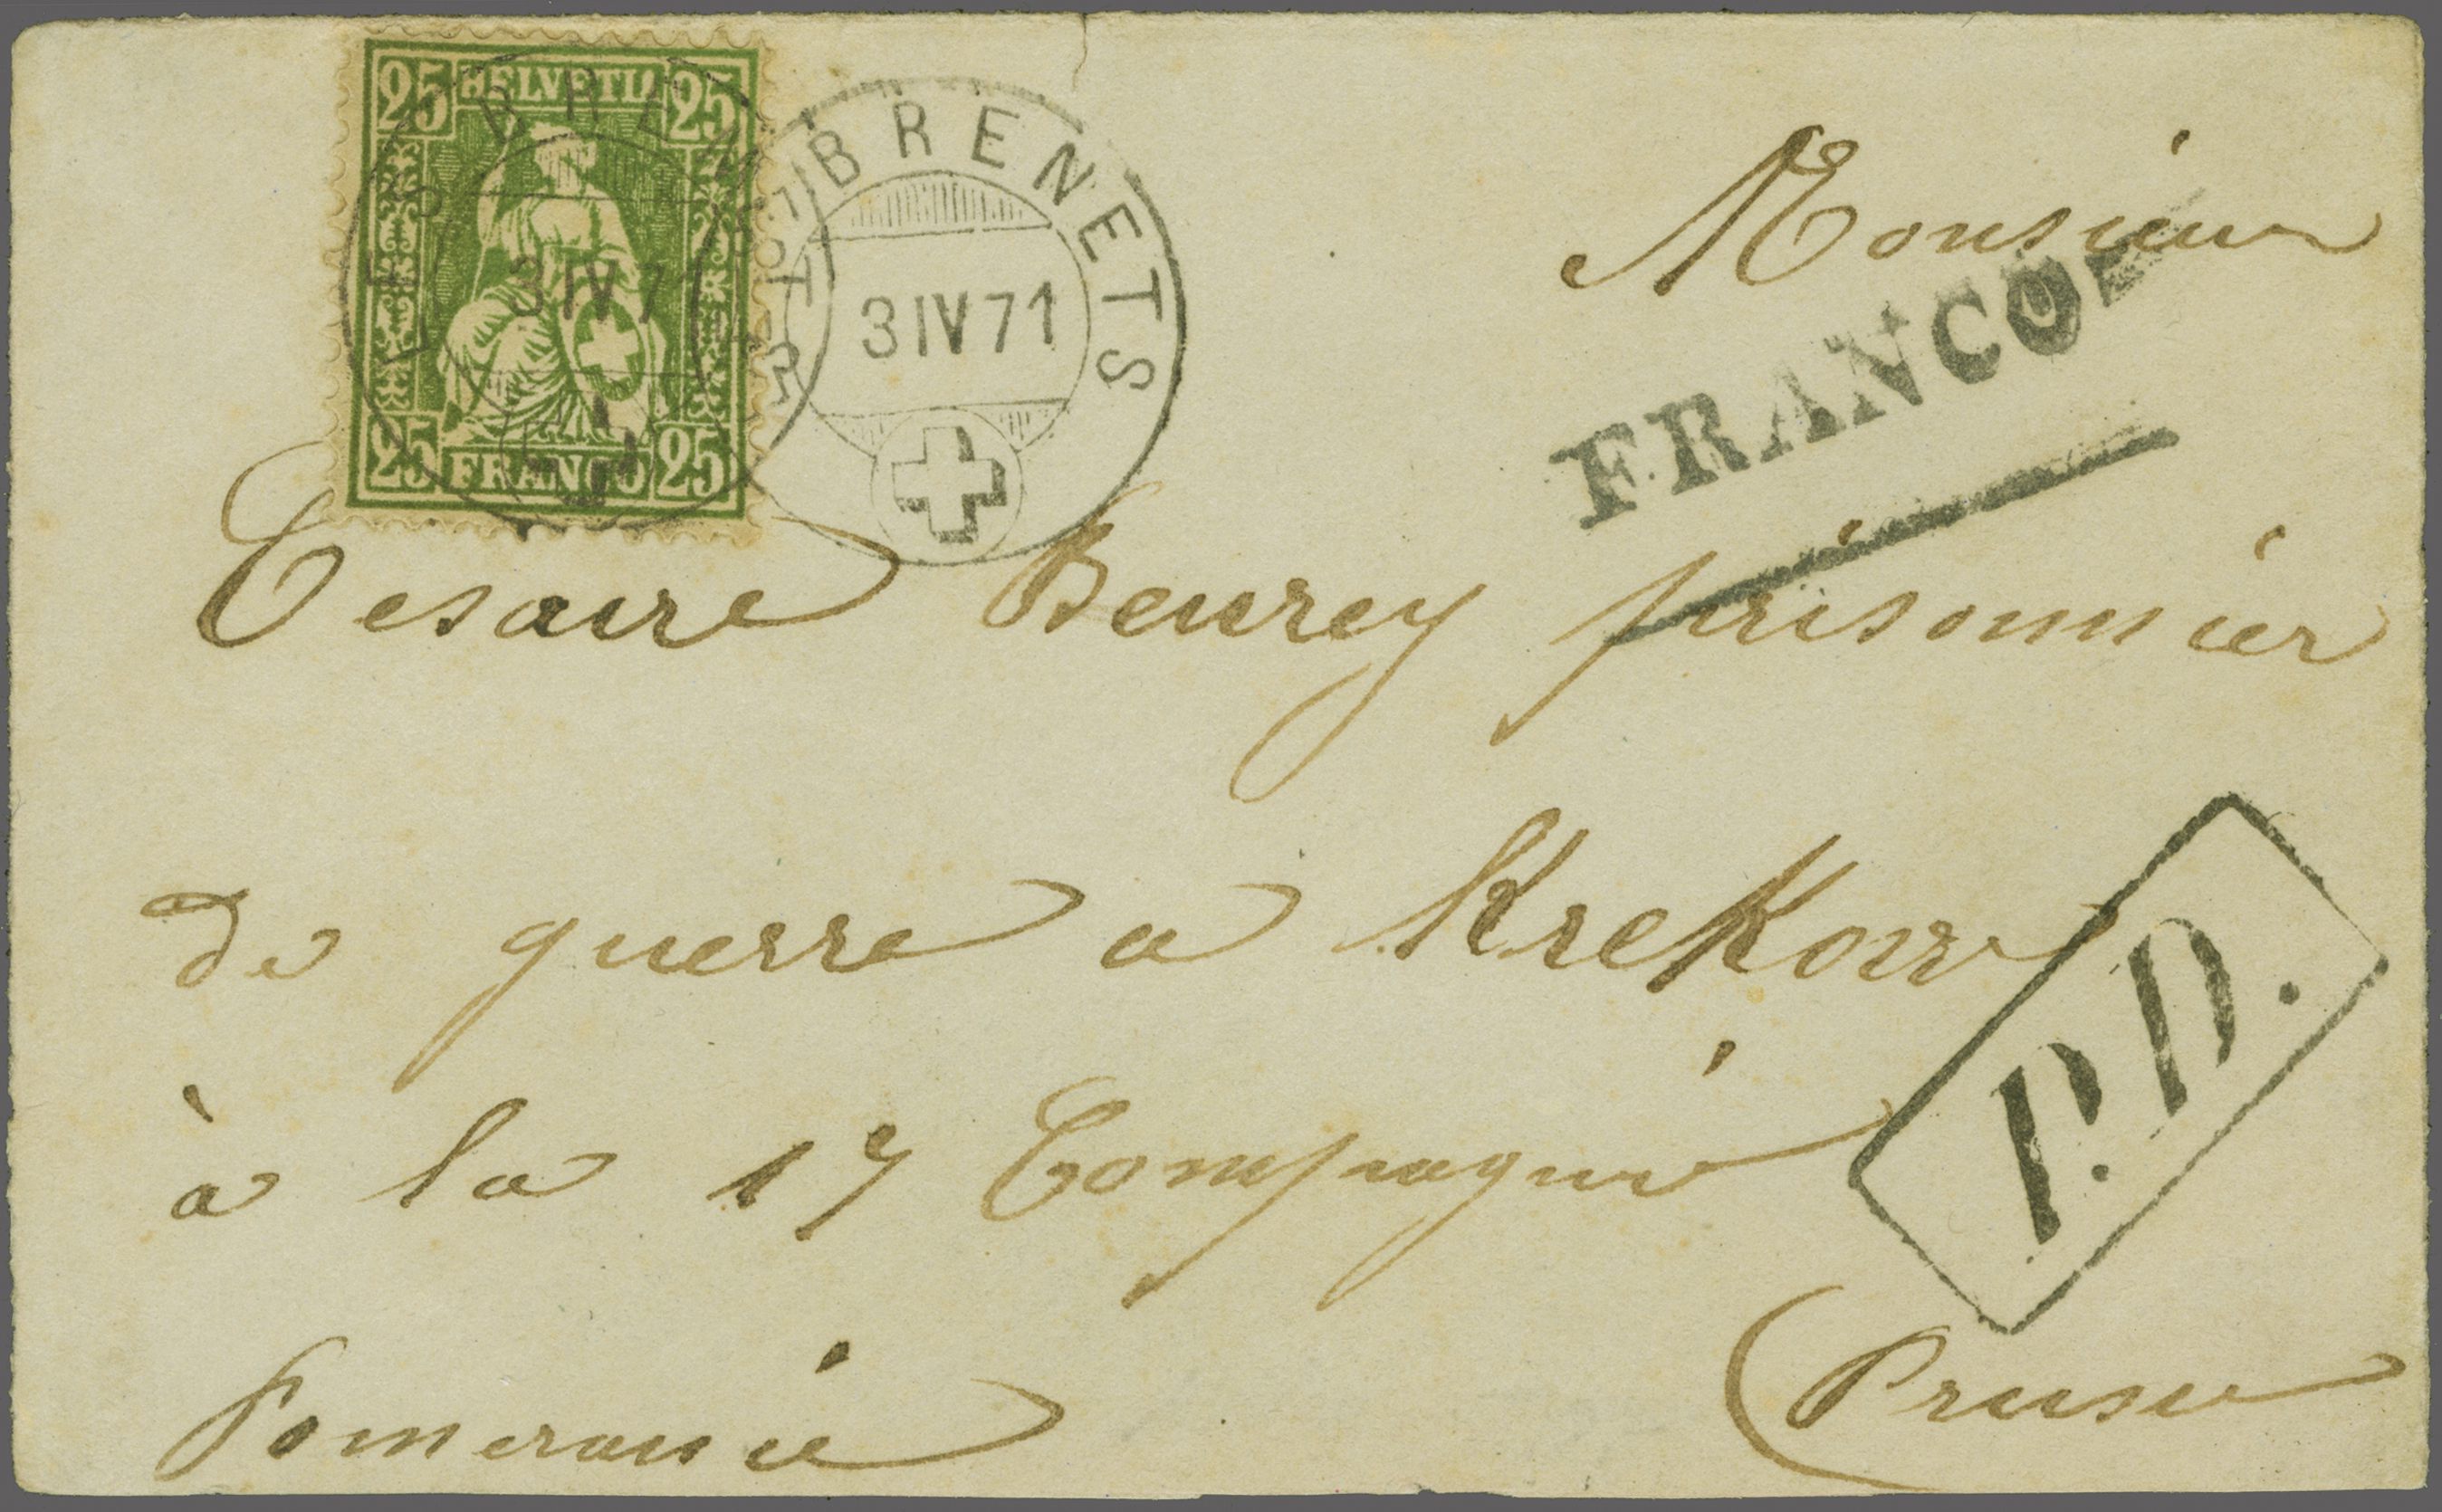 25 HELVETIA 25
25 FRANCO 25
LES BRENETS
3 IV 71
LES BRENETS
3 IV 71
Monsieur
FRANCO
Cesaire Beurey prisonnier
de guerre a Krekow
à la 17 Compagnie
P.D.
Pomeranie
(Prusse